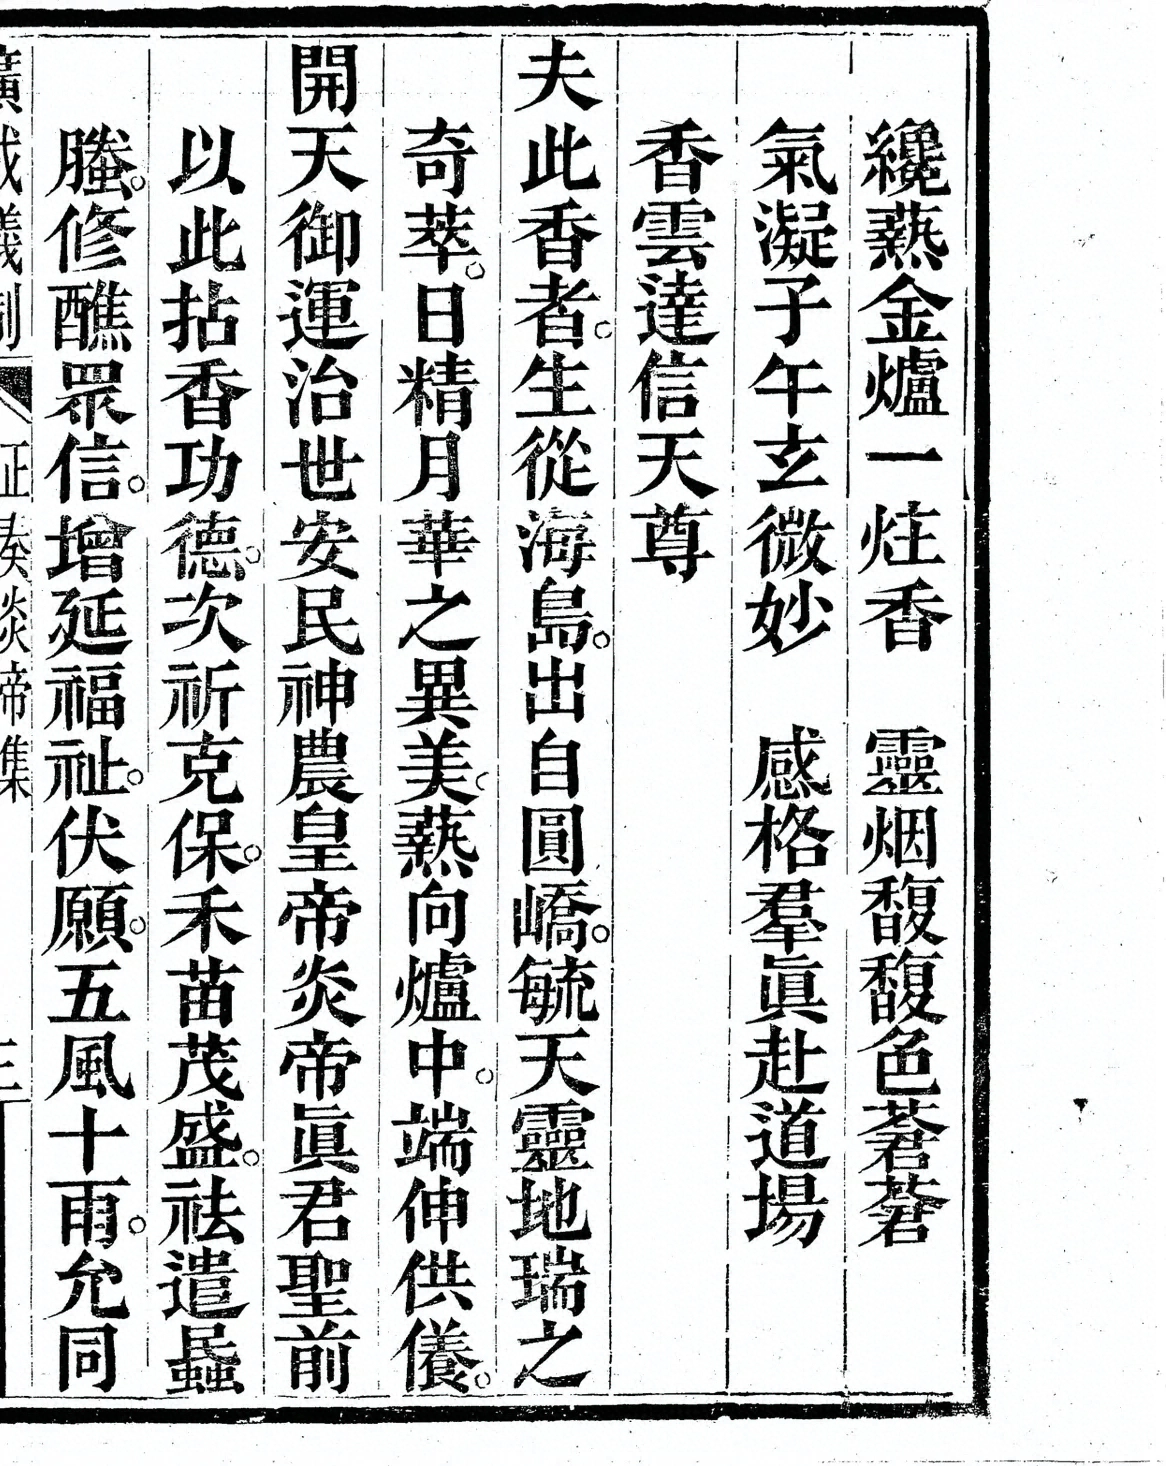 纔爇金爐一炷香　靈烟馥馥色蒼蒼
氣凝子午玄微妙　感格羣眞赴道場
香雲達信天尊
夫此香者。生從海島。出自圓嶠。毓天靈地瑞之
奇萃。日精月華之異美。爇向爐中。端伸供儀。
開天御運治世安民神農皇帝炎帝眞君聖前
以此拈香功德。次祈克保。禾苗茂盛。祛遣蟲
螣。修醮眾信。增延福祉。伏願。五風十雨。允同
廣成儀制　正奏炎帝集　三